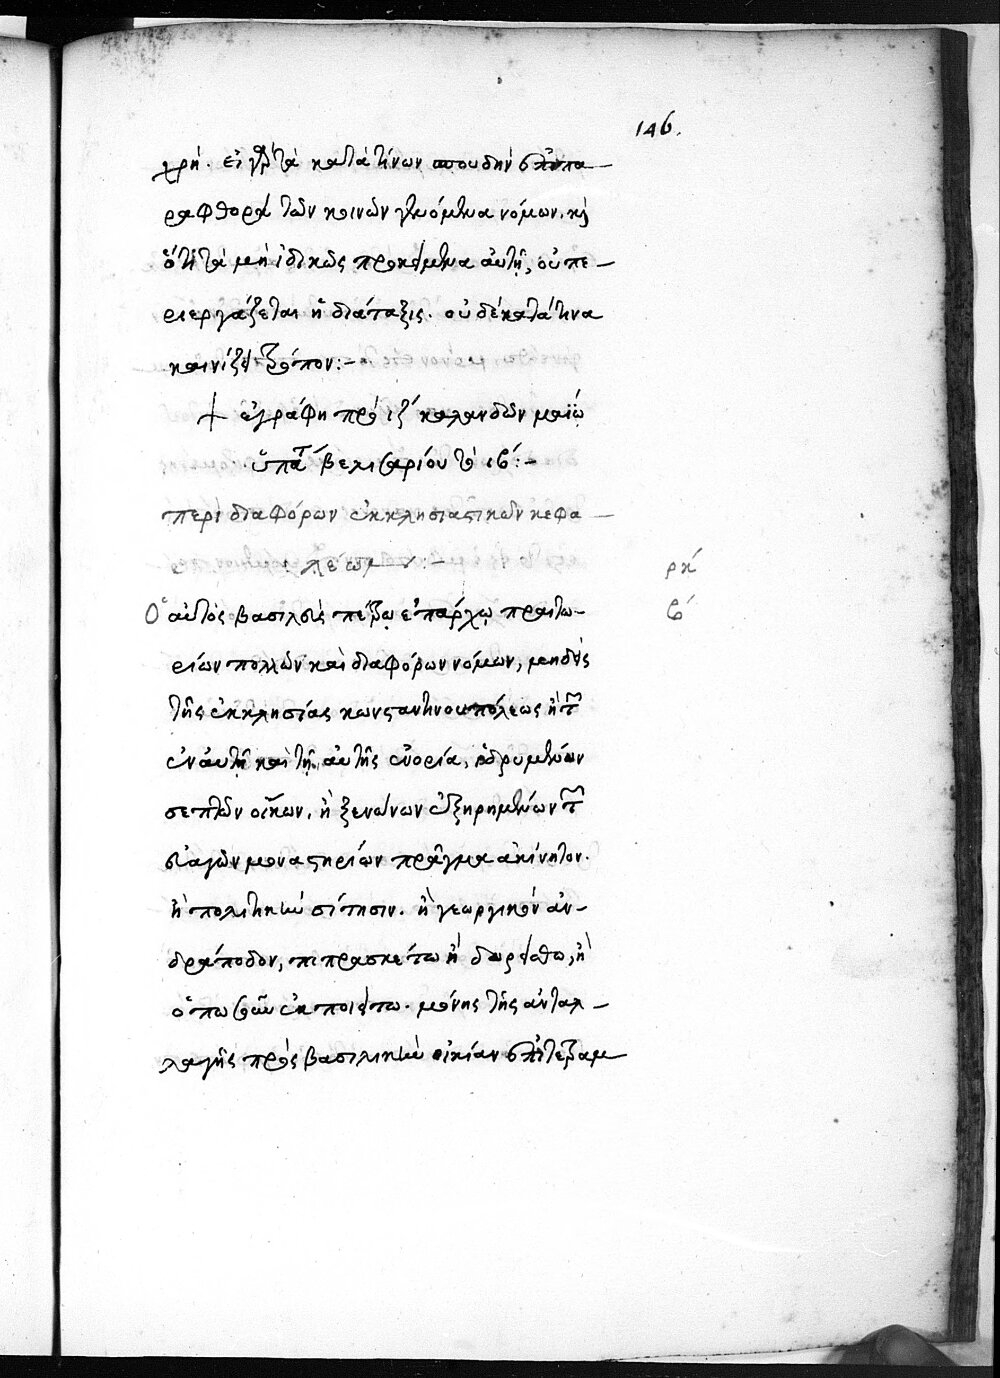 146.
χρή. εἰ γὰρ τὰ κατὰ τίνων σπουδὴν ἐπὶ πα
ραφθορᾷ τῶν κοινῶν γενόμενα νόμων. καὶ
ὅτι τὰ μὴ ἰδικῶς προκείμενα αὐτῇ, οὐ πε
ριεργάζεται ἡ διάταξις. οὐδὲ κατά τινα
καινίζει τρόπον:–
+ ἐγράφη πρὸ ιζ καλανδῶν μαΐω
ὑπατ βελισαρίου τὸ ιβ:–
περι διαφόρων ἐκκλησιαστικῶν κεφα
λαίων:–
ρκ
Ὁ αὐτὸς βασιλεὺς πέτρῳ ἐπάρχῳ πραιτω
β
ρίων πολλῶν καὶ διαφόρων νόμων, μηδεὶς
τῆς ἐκκλησίας κωνσταντινουπόλεως ἢ τῶν
ἐν αὐτῇ καὶ τῇ αὐτῆς ἐνορία, ἱδρυμένων
σεπτῶν οἴκων. ἢ ξενώνων ἐξηρημένων τῶν
εὐαγῶν μοναστηρίων πρᾶγμα ἀκίνητον.
ἢ πολιτικὴν σίτησιν. ἢ γεωργικὸν ἀν
δράποδον, πιπρασκέτω ἢ δωρείσθω, ἢ
ὁπωσοῦν ἐκποιείτω. μόνης τῆς ἀνταλ
λαγῆς πρὸς βασιλικὴν οἰκίαν ἐπιτετραμ